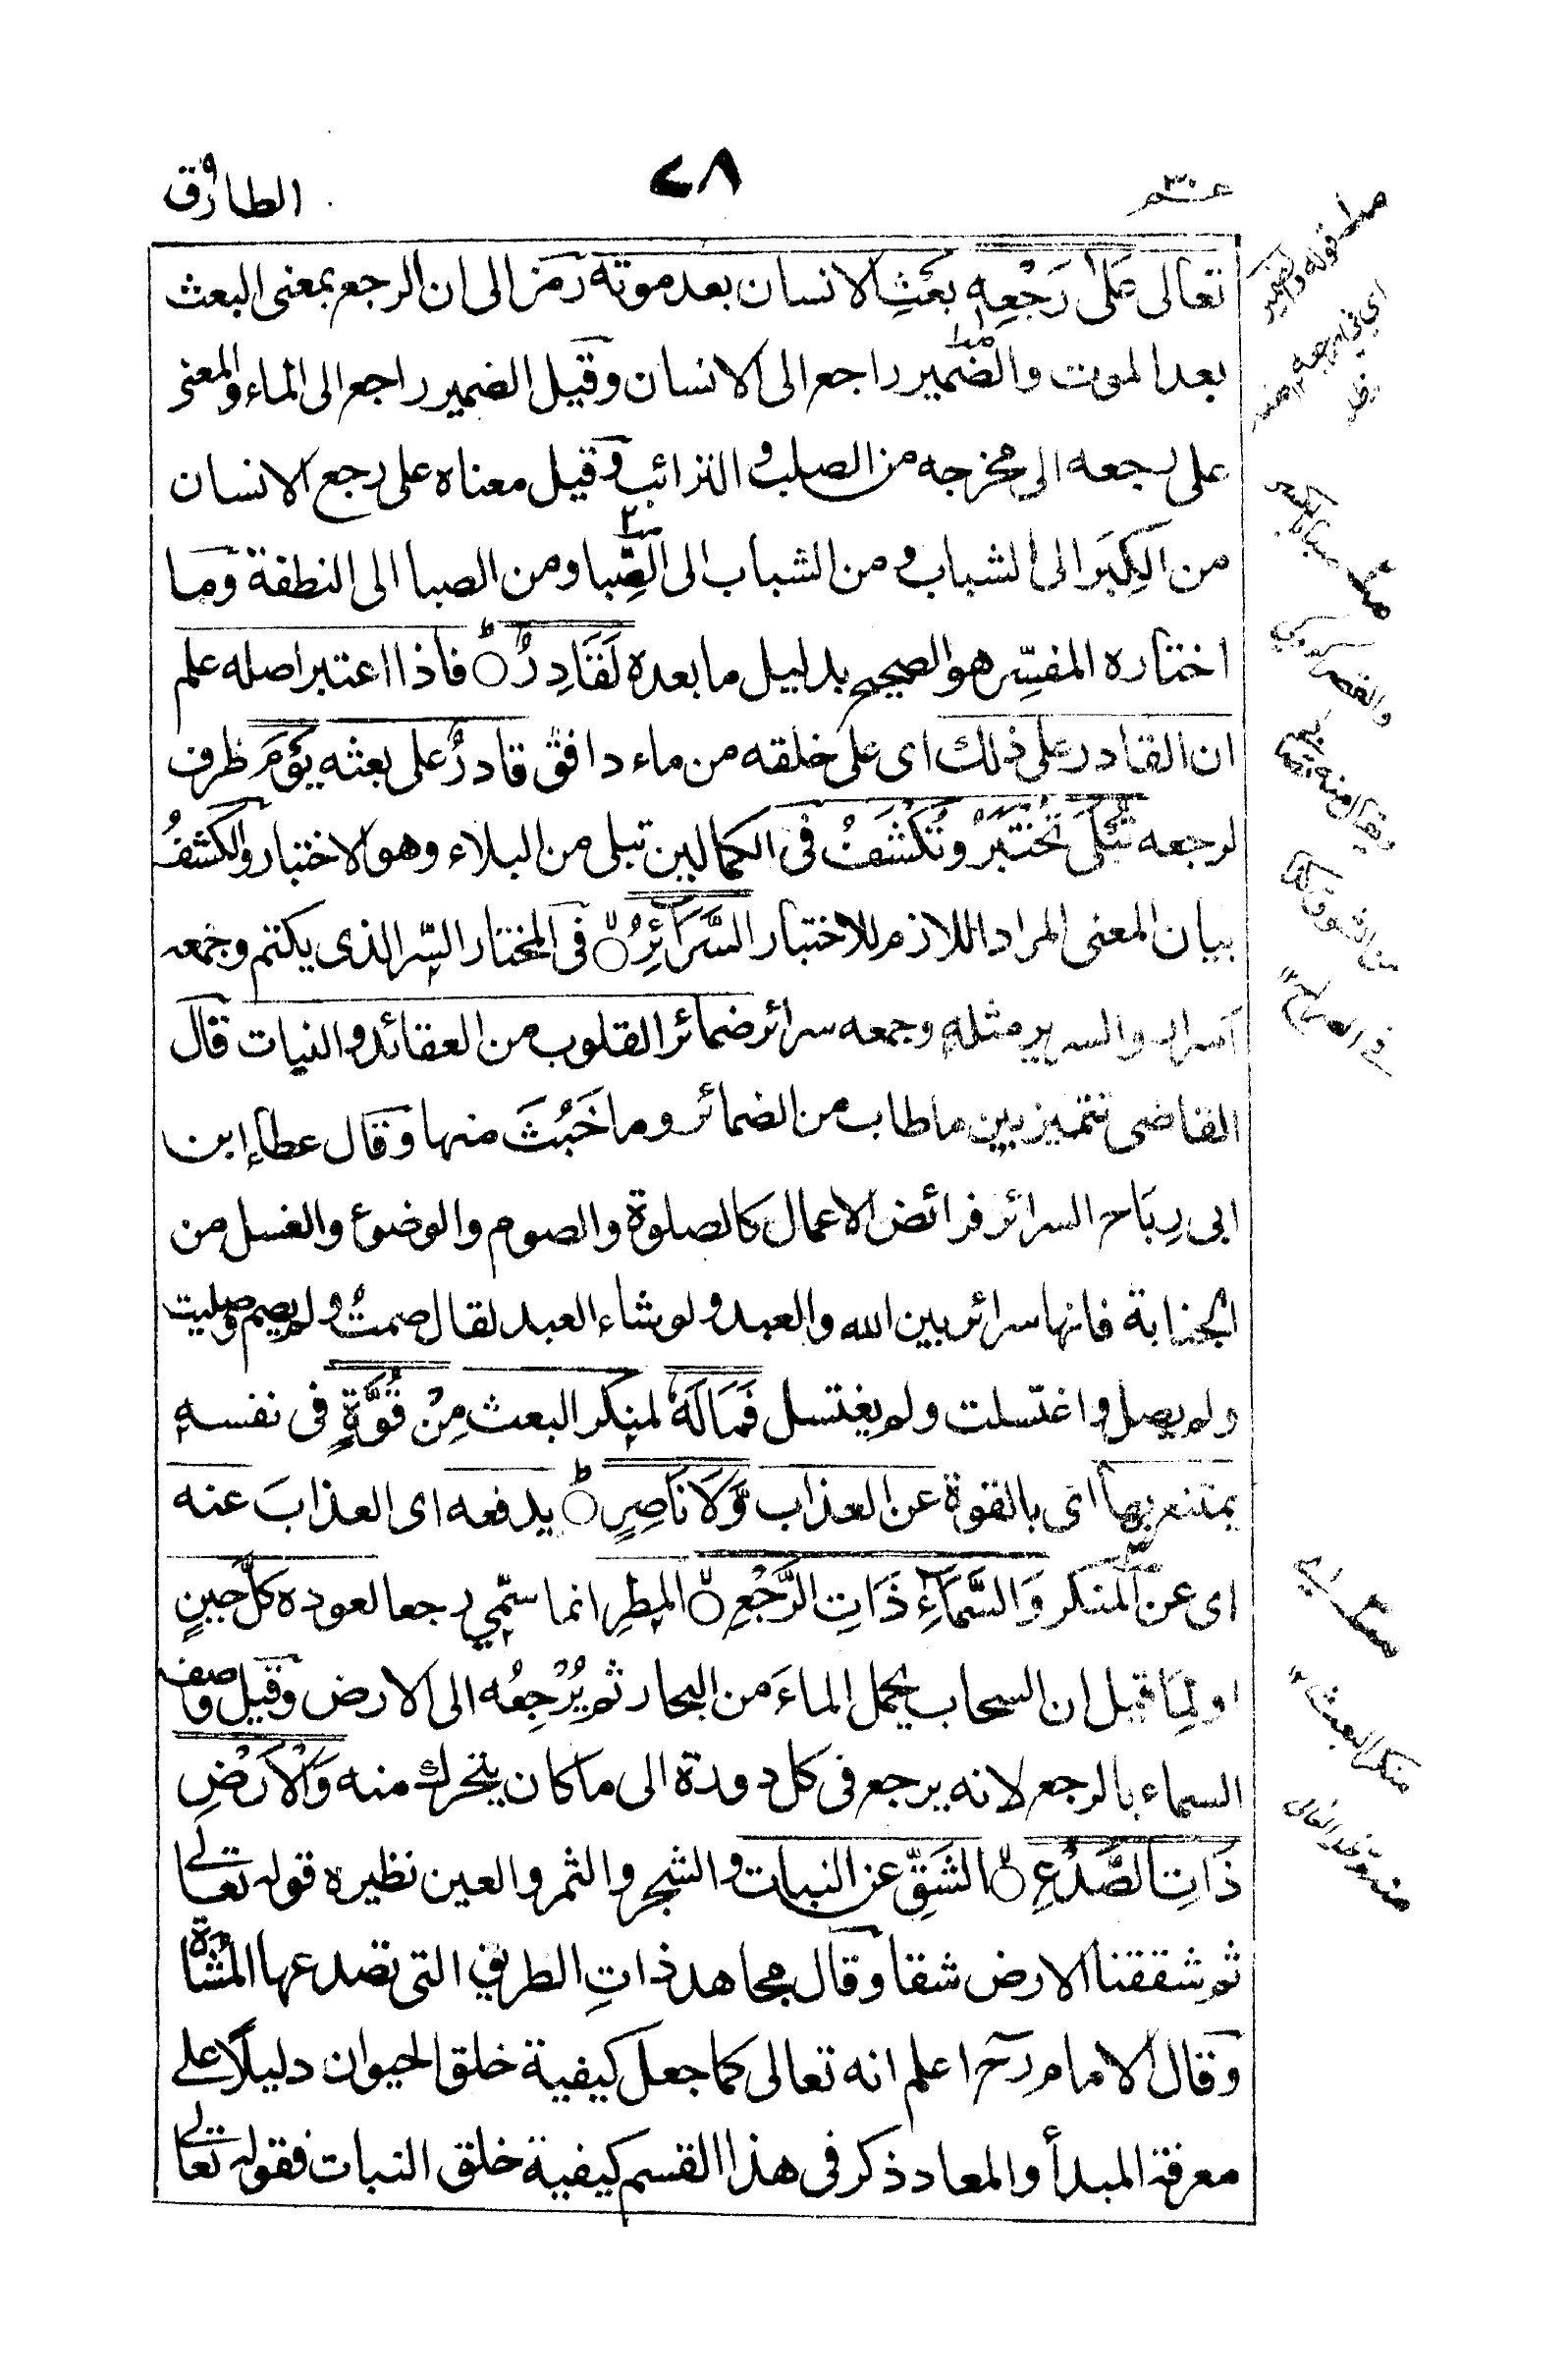 عم٣٠
٧٨
الطارق
تعالى عَلٰى رَجْعِهٖ بعثِ الانسان بعد موته رمز الى ان الرجع بمعنى البعث
بعد الموت والضمير راجع الى الانسان وقيل الضمير راجع الى الماء والمعنى
على رجعه الى مخرجه من الصلب و الترائب وقيل معناه على رجع الانسان
من الكِبَر الى الشباب و من الشباب الى الصِّبا ومن الصبا الى النطفة وما
اختاره المفسِّر هو الصحيح بدليل ما بعده لَقَادِرٌ ۝ ط فاذا اعتبر اصله علم
ان القادر على ذلك اى على خلقه من ماء دافق قادرٌ على بعثه يَوْمَ ظرف
لرجعه تُبْلَى تُخْتَبَرُ وتُكْشَفُ فى الكمالين تبلى من البلاء وهو الاختبار والكشفُ
بيان المعنى المراد اللازم للاختبار السَّرَآئِرُ ۝ لا فى المختار السِّر الذى يكتم وجمعه
اسرار والسريرة مثله وجمعه سرائر ضمائر القلوب من العقائد والنيات قال
القاضى تتميز بين ما طاب من الضمائر وما خَبُثَ منها وقال عطاء ابن
ابى رِبَاح السرائر فرائض الاعمال كالصلوة والصوم والوضوء والغسل من
الجنابة فانها سرائر بين الله والعبد ولو شاء العبد لقال صمتُ ولم يصم وصليت
ولم يصل واغتسلت ولم يغتسل فَمَا لَهٗ لمنكر البعث مِنْ قُوَّةٍ فى نفسه
يمتنع بها اى بالقوة عن العذاب وَّلَا نَاصِرٍ ۝ ط يدفعه اى العذابَ عنه
اى عن المنكر وَالسَّمَآءِ ذَاتِ الرَّجْعِ ۝ لا المطرِ انما سمّي رجعا لعوده كلَّ حينٍ
او لِمَا قيل ان السحاب يحمل الماءَ من البحار ثم يُرْجِعُه الى الارض وقيل وصف
السماء بالرجع لانه يرجع فى كل دورة الى ما كان يتحرك منه وَالْاَرْضِ
ذَاتِ الصَّدْعِ ۝ لا الشَقِّ عن النبات والشجر والثمر والعين نظيره قوله تعالى
ثم شققنا الارض شقا وقال مجاهد ذاتِ الطريق التى تصدعها المُشاة
وقال الامام رح اعلم انه تعالى كما جعل كيفية خلق الحيوان دليلًا على
معرفة المبدأ والمعاد ذكر فى هذا القسم كيفية خلق النبات فقوله تعالى
صـ١ قوله والضمير
صـ٢ صبا بالكسر
والقصر
منكر البعث